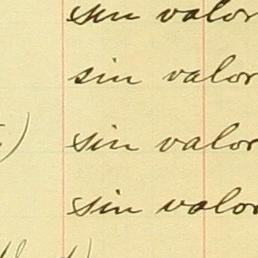 sin valor
sin valor
sin valor
sin valor